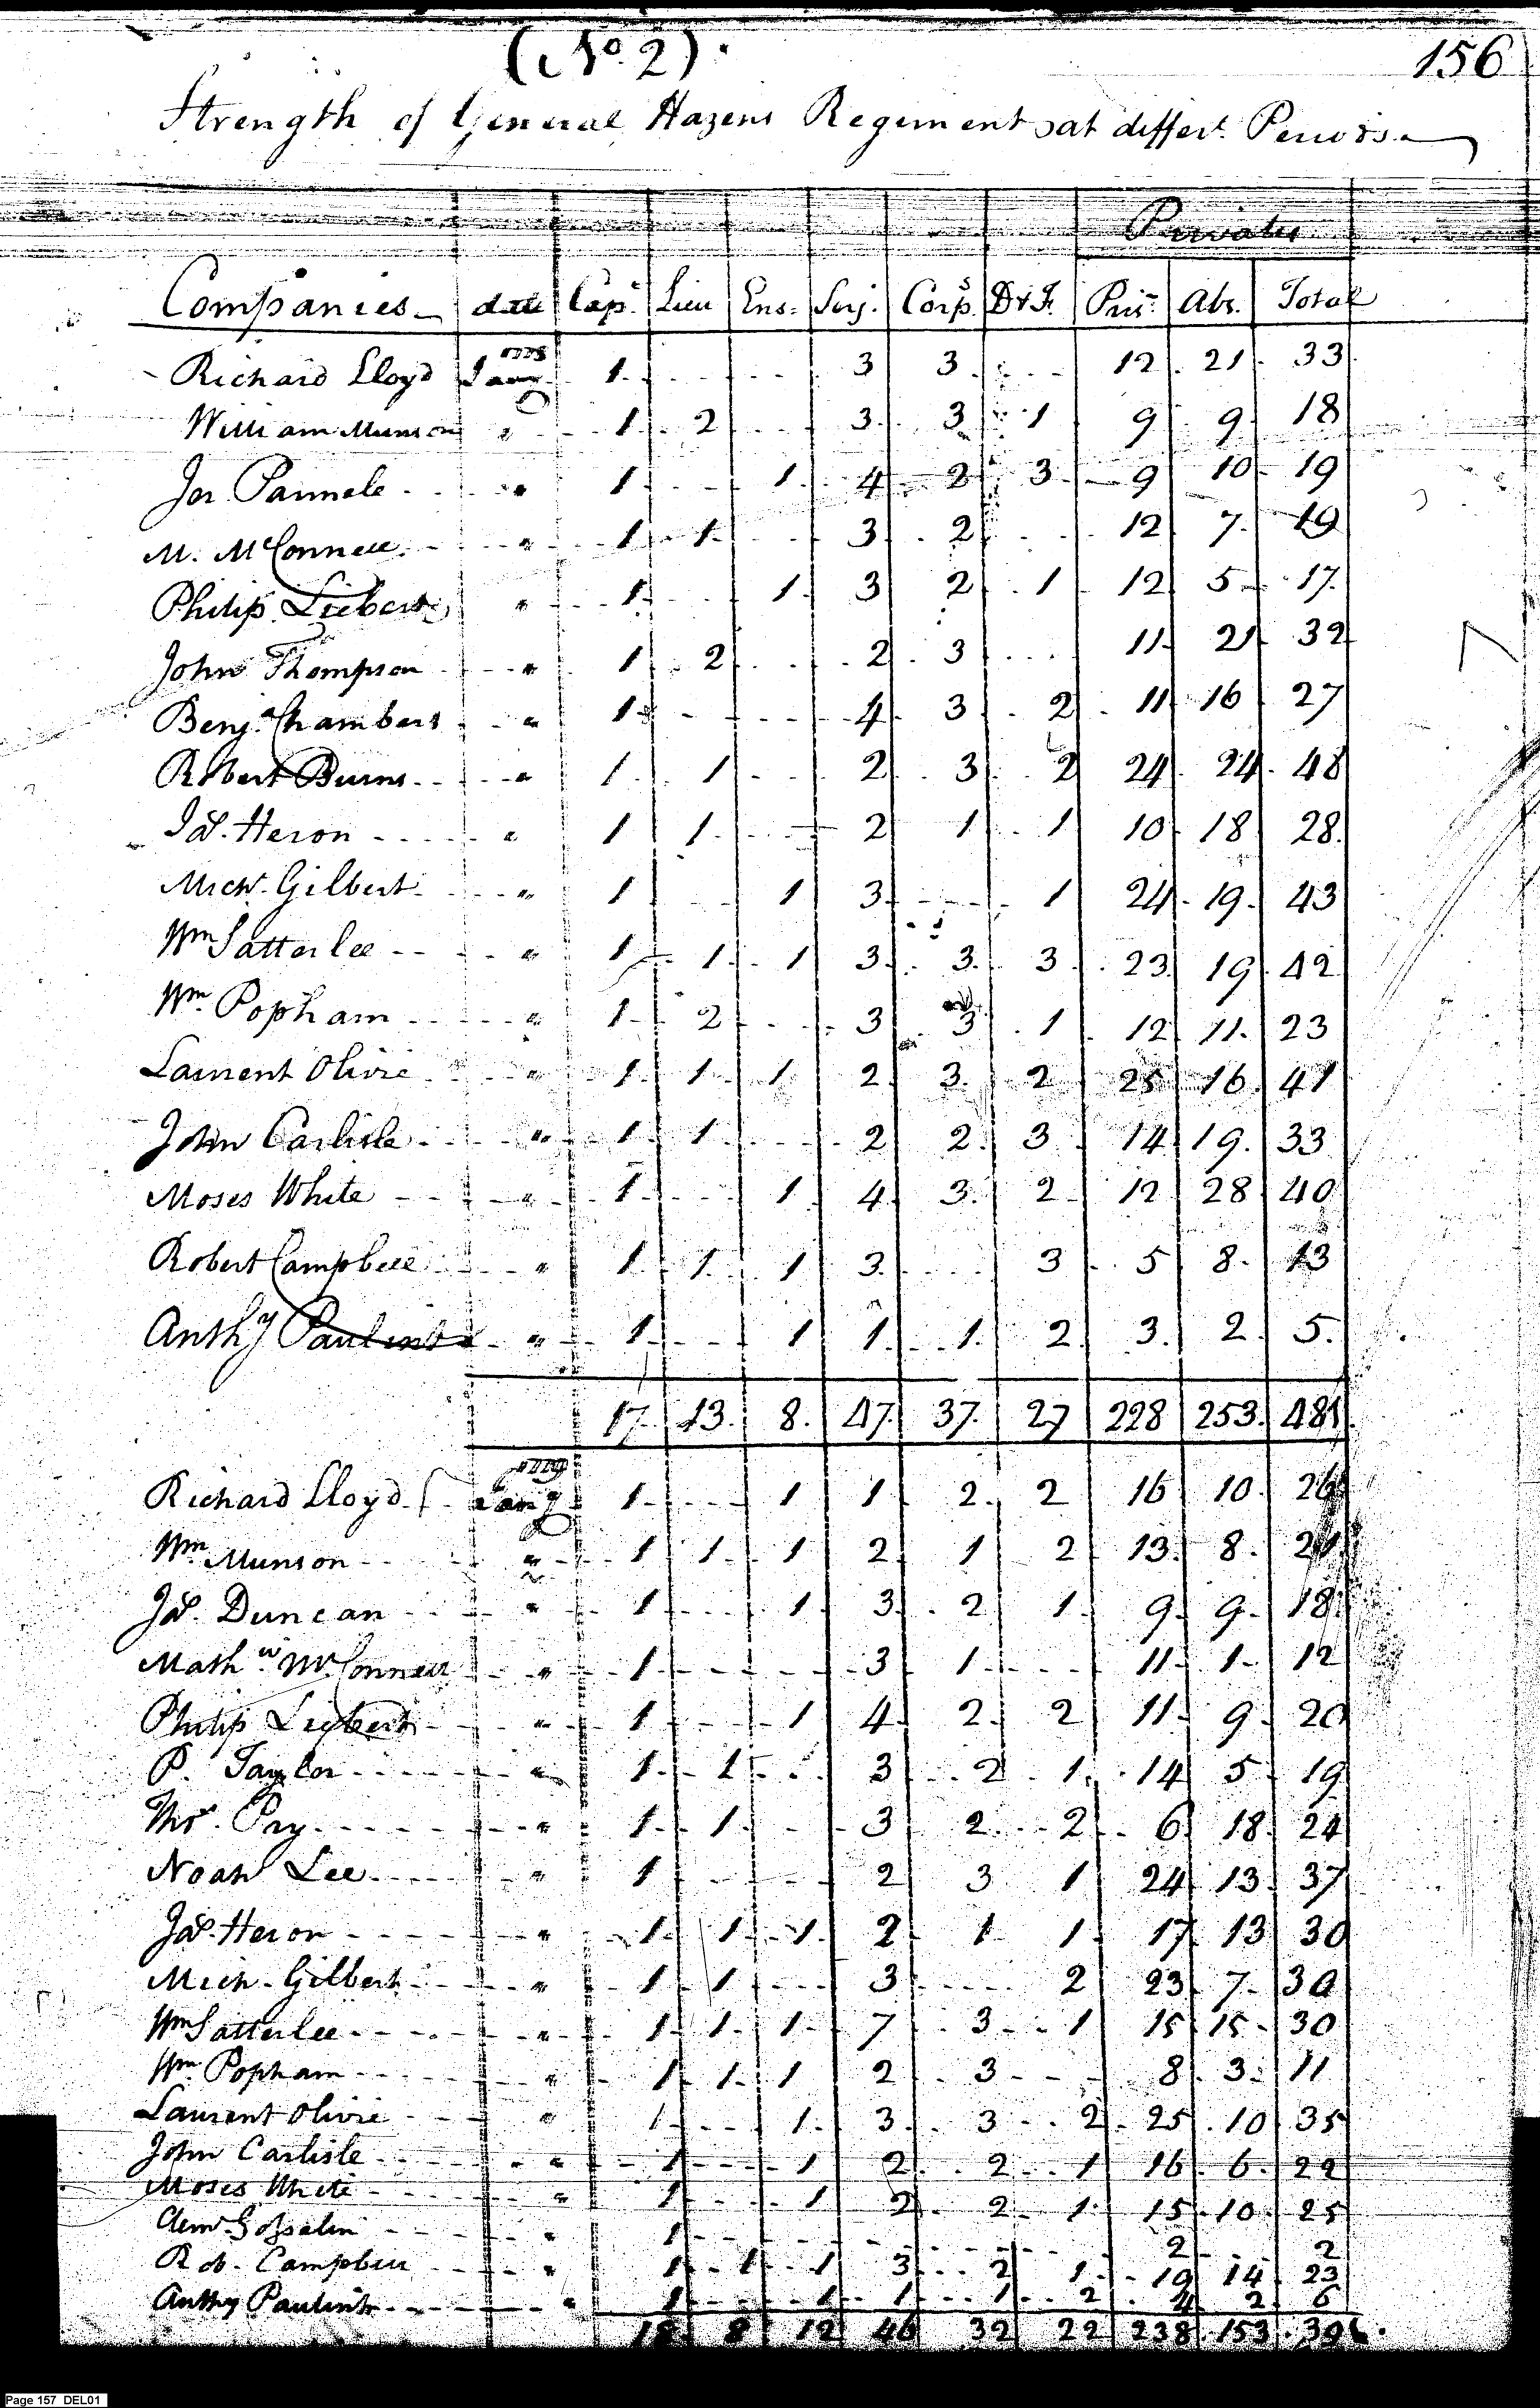 (No. 2).
156
Strength of General Hazens Regiment at differt. Periods.
Privates
Companies date Capt. Lieu Ens: Serj. Corps. D & F. Pris. Abs. Total
Richard Lloyd 1778 Jany 1 3 3 12 21 33
William Munson " 1 2 3 3 1 9 9 18
Jer. Parmele " 1 1 4 2 3 9 10 19
M. McConnell " 1 1 3 2 12 7 19
Philip Liebert " 1 1 3 2 1 12 5 17
John Thompson " 1 2 2 3 11 21 32
Benja. Chambers " 1 4 3 2 11 16 27
Robert Burns " 1 1 2 3 2 24 24 48
Jas. Heron " 1 1 2 1 1 10 18 28
Michl. Gilbert " 1 1 3 1 24 19 43
Wm Satterlee " 1 1 1 3 3 3 23 19 42
Wm. Popham " 1 2 3 3 1 12 11 23
Laurent Olivie " 1 1 1 2 3 2 25 16 41
John Carlisle " 1 1 2 2 3 14 19 33
Moses White " 1 1 4 3 2 12 28 40
Robert Campbell " 1 1 1 3 3 5 8 13
Anthy Paulint " 1 1 1 1 2 3 2 5
17 13 8 47 37 27 228 253 481
Richard Lloyd 1779 Jany 1 1 1 2 2 16 10 26
Wm Munson " 1 1 1 2 1 2 13 8 21
Jas. Duncan " 1 1 3 2 1 9 9 18
Mathw. McConnell " 1 3 1 11 1 12
Philip Liebert " 1 1 4 2 2 11 9 20
P. Taylor " 1 1 3 2 1 14 5 19
Thos. Pry " 1 1 3 2 2 6 18 24
Noah Lee " 1 2 3 1 24 13 37
Jas. Heron " 1 1 1 2 1 1 17 13 30
Mich. Gilbert " 1 1 3 2 23 7 30
Wm Satterlee " 1 1 1 7 3 1 15 15 30
Wm. Popham " 1 1 1 2 3 8 3 11
Laurent Olivie " 1 1 3 3 2 25 10 35
John Carlisle " 1 1 2 2 1 16 6 22
Moses White " 1 1 2 2 1 15 10 25
Clemt. Gosselin " 1 2 2
Rob. Campbell " 1 1 1 3 2 1 19 14 23
Anthy Paulint " 1 1 1 1 2 4 2 6
18 8 12 46 32 22 238 153 391
Page 157 DEL01